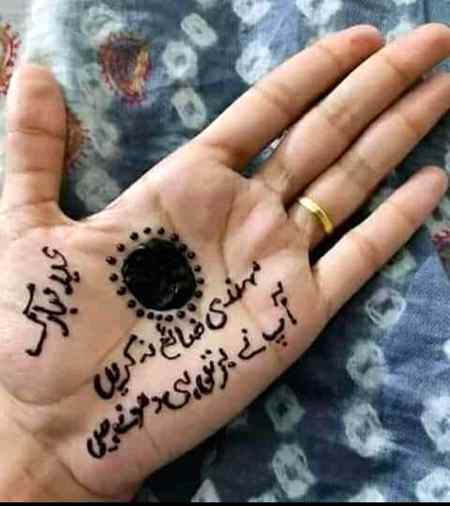 عید مبارک
مہندی ضائع نہ کریں
آپ نے برتن ہی دھونے ہیں